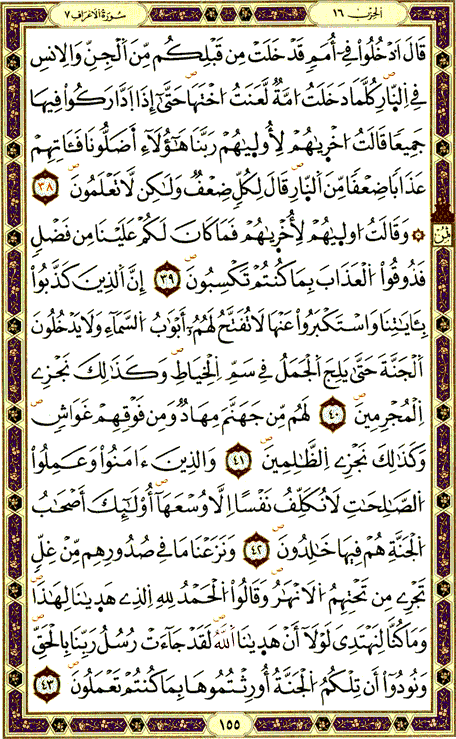 الحزب ١٦
سورة الأعراف ٧
قَالَ اَدْخُلُواْ فِےٓ أُمَمٖ قَدْ خَلَتْ مِن قَبْلِكُم مِّنَ اَلْجِنِّ وَالِانسِ
فِے اِلنّ۪ارِ كُلَّمَا دَخَلَتُ امَّةٞ لَّعَنَتُ اخْتَهَا حَتَّىٰٓ إِذَا اَدَّارَكُواْ فِيهَا
جَمِيعاٗ قَالَتُ اخْر۪يٰهُمْ لِأُول۪يٰهُمْ رَبَّنَا هَٰٓؤُلَآءِ اَضَلُّونَا فَـَٔاتِهِمْ
عَذَاباٗ ضِعْفاٗ مِّنَ اَلنّ۪ارِ قَالَ لِكُلّٖ ضِعْفٞ وَلَٰكِن لَّا تَعْلَمُونَ ٣٨
۞ وَقَالَتُ اول۪يٰهُمْ لِأُخْر۪يٰهُمْ فَمَا كَانَ لَكُمْ عَلَيْنَا مِن فَضْلٖ
فَذُوقُواْ اُلْعَذَابَ بِمَا كُنتُمْ تَكْسِبُونَ ٣٩ إِنَّ اَلذِينَ كَذَّبُواْ
بِـَٔايَٰتِنَا وَاسْتَكْبَرُواْ عَنْهَا لَا تُفَتَّحُ لَهُمُۥٓ أَبْوَٰبُ اُلسَّمَآءِ وَلَا يَدْخُلُونَ
اَلْجَنَّةَ حَتَّىٰ يَلِجَ اَلْجَمَلُ فِے سَمِّ اِلْخِيَاطِ وَكَذَٰلِكَ نَجْزِے
اِلْمُجْرِمِينَ ٤٠ لَهُم مِّن جَهَنَّمَ مِهَادٞ وَمِن فَوْقِهِمْ غَوَاشٖ
وَكَذَٰلِكَ نَجْزِے اِلظَّٰلِمِينَ ٤١ وَالذِينَ ءَامَنُواْ وَعَمِلُواْ
اُلصَّٰلِحَٰتِ لَا نُكَلِّفُ نَفْساً اِلَّا وُسْعَهَآ أُوْلَٰٓئِكَ أَصْحَٰبُ
اُلْجَنَّةِ هُمْ فِيهَا خَٰلِدُونَ ٤٢ وَنَزَعْنَا مَا فِے صُدُورِهِم مِّنْ غِلّٖ
تَجْرِے مِن تَحْتِهِمُ اُلَانْهَٰرُ وَقَالُواْ اُلْحَمْدُ لِلهِ اِلذِے هَد۪يٰنَا لِهَٰذَا
وَمَا كُنَّا لِنَهْتَدِيَ لَوْلَآ أَنْ هَد۪يٰنَا اَللَّهُ لَقَدْ جَآءَتْ رُسُلُ رَبِّنَا بِالْحَقِّ
وَنُودُوٓاْ أَن تِلْكُمُ اُلْجَنَّةُ أُورِثْتُمُوهَا بِمَا كُنتُمْ تَعْمَلُونَ ٤٣
ثمن
١٥٥